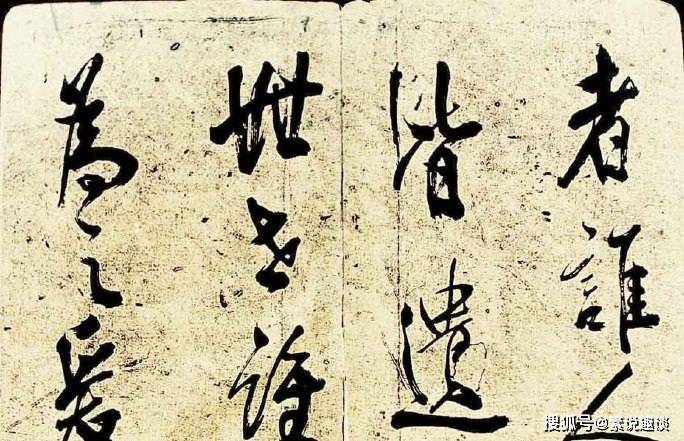 者誰人
皆遺
世世誰
為之
搜狐号@素说趣谈